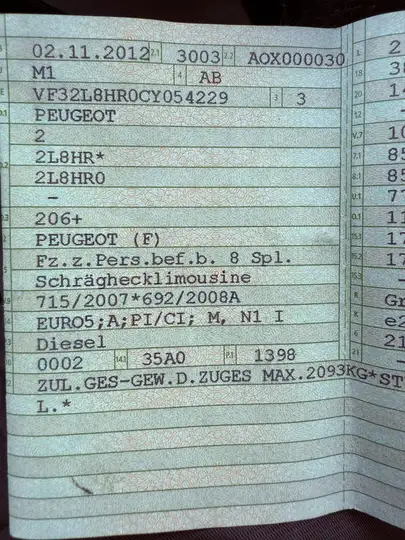 02.11.2012 2.1 3003 2.2 AOX000030 L 2
M1 4 AB 18
VF32L8HR0CY054229 3 3 20
PEUGEOT 12 -
2 V.7 10
2L8HR* 7.1 85
2L8HR0 8.1 85
- U.1 77
206+ 11
PEUGEOT (F) 17
Fz.z.Pers.bef.b. 8 Spl. 17
Schräghecklimousine
715/2007*692/2008A K Gr
EURO5;A;PI/CI; M, N1 I 6 e2
Diesel 21
0002 14.1 35A0 P.1 1398 21 -
ZUL.GES-GEW.D.ZUGES MAX.2093KG*ST
L.*